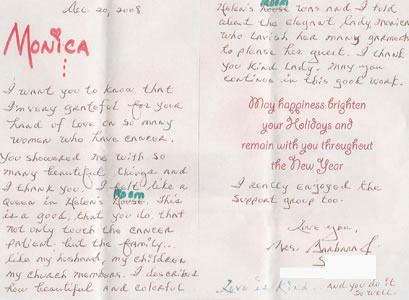 Dec. 20, 2008
Monica
I want you to know that
I'm very grateful for your
hand of love on so many
women who have cancer.
You showered me with so
many beautiful things and
I thank you. I felt like a
Room
Queen in Helen's House. This
is a good, that you do, that
not only touch the cancer
patient, but the family...
like my husband, my children
my church members. I described
how beautiful and colorful
Room
Helen's House was and I told
about the elegant lady, Monica
who lavish her many garments
to please her guest. I thank
you kind lady. May you
continue in this good work.
May happiness brighten
your Holidays and
remain with you throughout
the New Year
I really enjoyed the
support group too.
Love you,
Mrs. Barbara
S
Love is Kind... and you do it
so well.